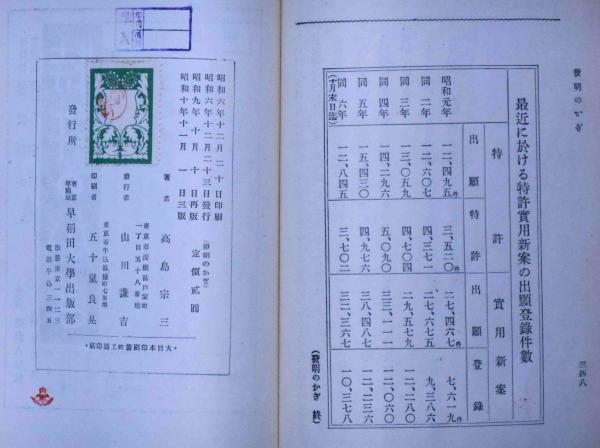 發明のかぎ
三四八
最近に於ける特許實用新案の出願登錄件數
特許
實用新案
出願
特許
出願
登錄
昭和元年 一二、四九五件 三、五二〇件 二七、四四六件 七、六一九件
同二年 一二、六〇七 四、三七一 二七、六七五 九、三八六
同三年 一三、〇五九 四、七〇四 二九、五七九 一二、二八〇
同四年 一四、二九六 五、〇九〇 三三、一一一 一二、〇六〇
同五年 一五、四三〇 四、九七六 三八、四八七 一二、二三六
同六年 一二、八四五 三、七〇二 三二、三六七 一〇、三七八
(十月末日迄)
(發明のかぎ 終)
昭和六年十二月二十日印刷
昭和六年十二月二十三日發行
昭和九年十月十日再版
昭和十年十一月一日三版
(發明のかぎ)
定價貳圓
著者 高島宗三
發行者 山田謙吉
印刷者 五十嵐良晃
發行所 東京早稻田 早稻田大學出版部
大日本印刷